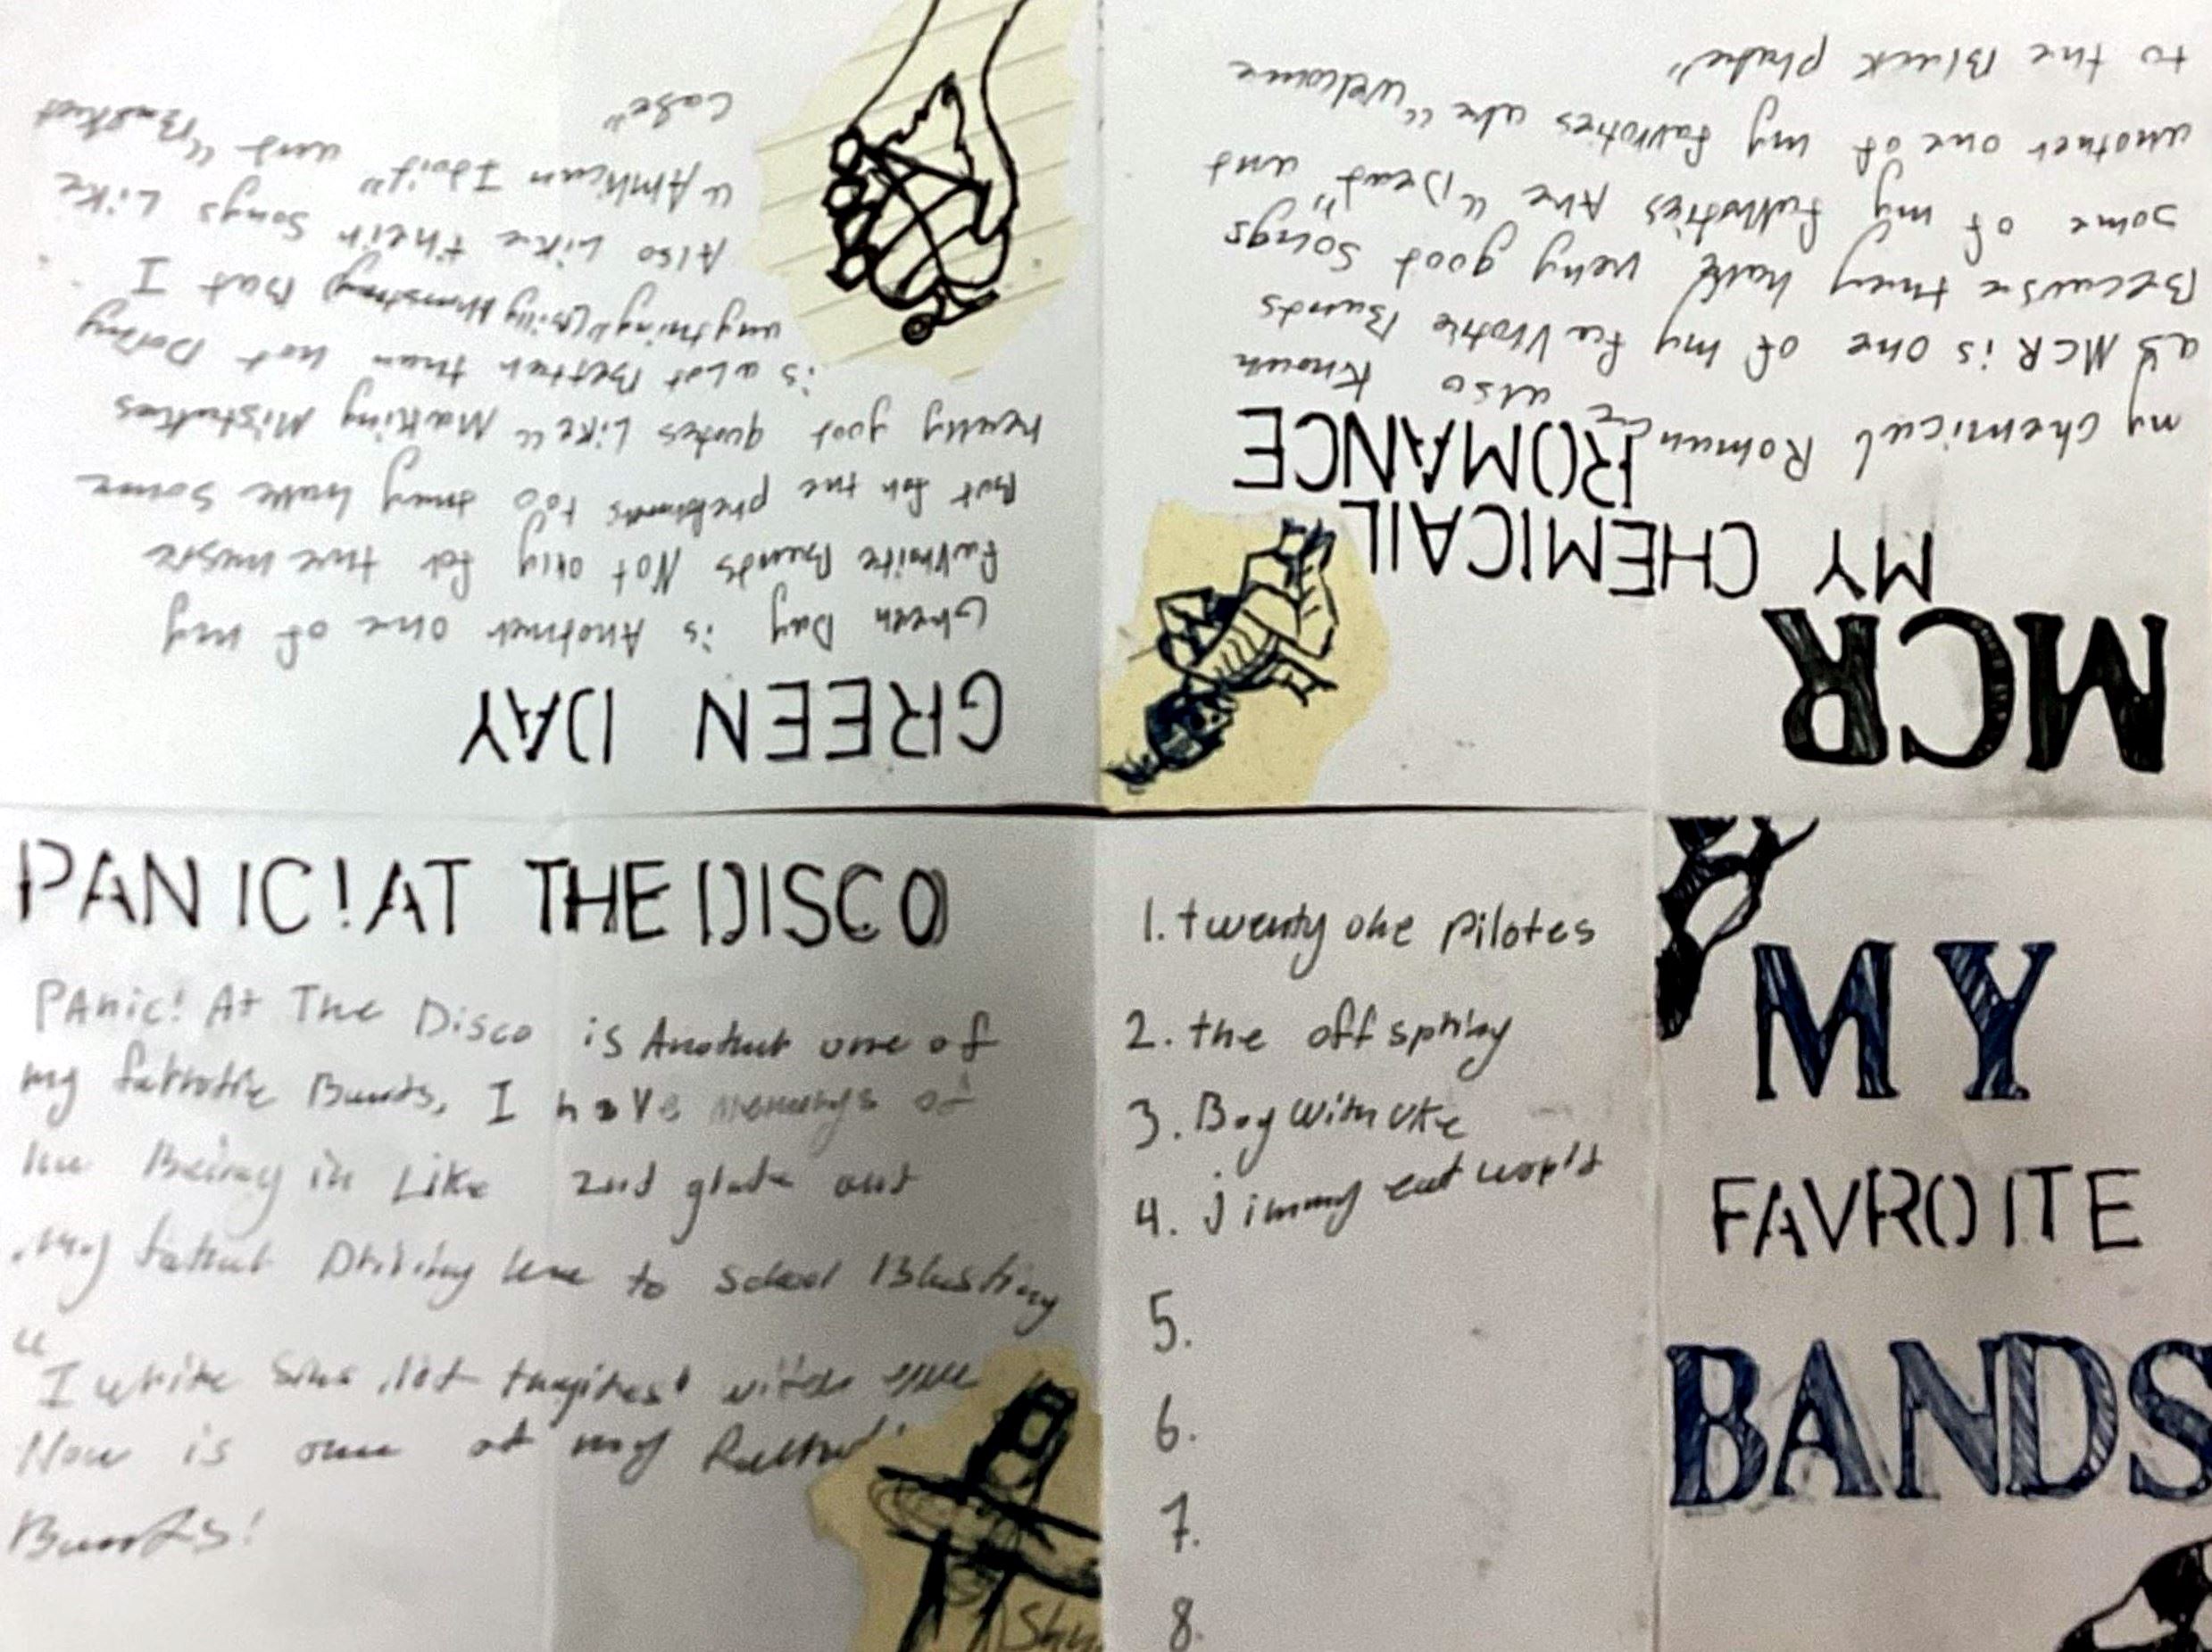 MY
FAVROITE
BANDS
MCR
MY CHEMICAIL
ROMANCE
my Chemical Romance also Known
as MCR is one of my favrotie Bands
Because they have very good songs
some of my favroties Are "Dead" and
another one of my favroties are "welcome
to the Black
GREEN DAY
Green Day is Another one of my
Favroite Bands Not only for the music
But for the too they have some
really good quotes Like "Making Mistakes
is alot Better than not Doing
anything" (Billy Armstrong) But I
Also Like their songs Like
"American Idoit" and "Basket
Case"
PANIC! AT THE DISCO
PAnic! At The Disco is Another one of
my favrotie Bands, I have of
me Being in Like 2nd grade and
my father Driving me to school Blasting
"I write sins not
Now is one of my
Bands!
1. twenty one pilotes
2. the offspring
3. Boy With Uke
4. jimmy eat world
5.
6.
7.
8.